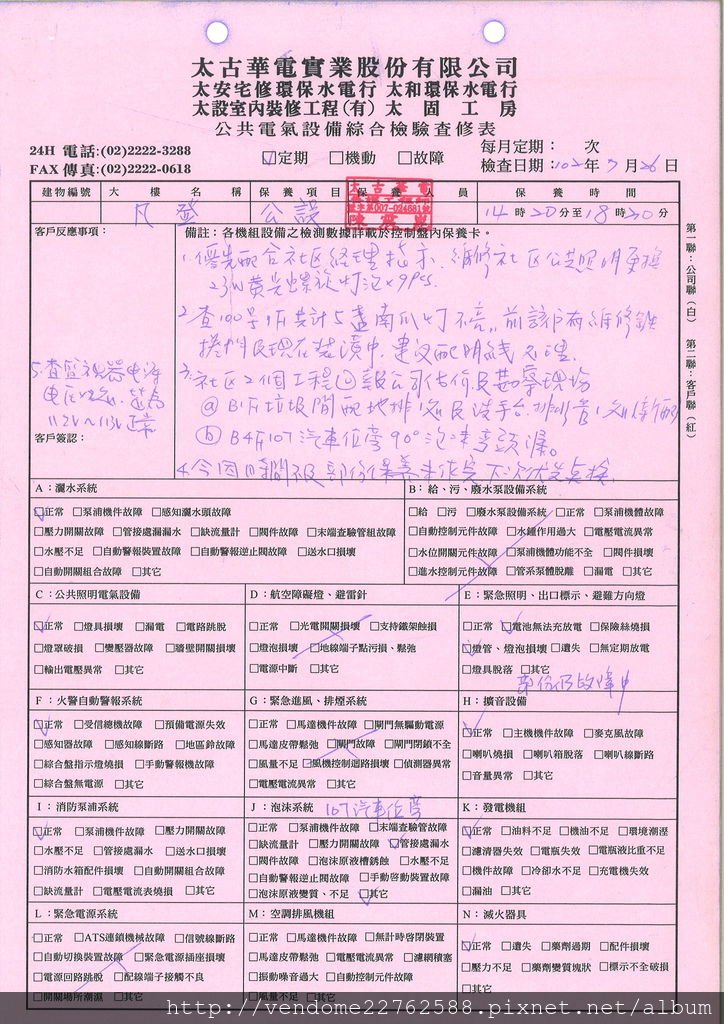 太古華電實業股份有限公司
太安宅修環保水電行 太和環保水電行
太設室內裝修工程(有) 太固工房
公共電氣設備綜合檢驗查修表
24H 電話:(02)2222-3288
FAX 傳真:(02)2222-0618
☑定期 □機動 □故障
每月定期： 次
檢查日期:102年7月26日
建物編號 大樓名稱 保養項目 保養人員 保養時間
凡登 公設 14時20分至18時20分
太古華電
陳
客戶反應事項：
備註：各機組設備之檢測數據詳載於控制盤內保養卡。
1.優先配合社區經理指示,維修社區公共照明更換
23W黃光螺旋燈泡x9PCS.
2.查100號1F共計5盞南瓜燈不亮,前該戶有維修
3.社區2個工程回報公司估價及勘察現場
ⓐB1F垃圾間配地排
ⓑB4F107汽車位旁90°泡沫彎頭漏。
5.查監視器電源
電压
112V~113V正常
客戶簽認：
第一聯：公司聯(白) 第二聯：客戶聯(紅)
A：灑水系統
☑正常 □泵浦機件故障 □感知灑水頭故障
□壓力開關故障 □管接處漏漏水 □缺流量計 □閥件故障 □末端查驗管組故障
□水壓不足 □自動警報裝置故障 □自動警報逆止閥故障 □送水口損壞
□自動開關組合故障 □其它
B：給、污、廢水泵設備系統
□給 □污 □廢水泵設備系統 □正常 □泵浦機體故障
□自動控制元件故障 □水錘作用過大 □電壓電流異常
□水位開關元件故障 □泵浦機體功能不全 □閥件損壞
□進水控制元件故障 □管系泵體脫離 □漏電 □其它
C：公共照明電氣設備
☑正常 □燈具損壞 □漏電 □電路跳脫
□燈罩破損 □變壓器故障 □牆壁開關損壞
□輸出電壓異常 □其它
D：航空障礙燈、避雷針
□正常 □光電開關損壞 □支持鐵架蝕損
□燈泡損壞 □地線端子點污損、鬆弛
□電源中斷 □其它
E：緊急照明、出口標示、避難方向燈
□正常 ☑電池無法充放電 □保險絲燒損
☑燈管、燈泡損壞 □遺失 □無定期放電
□燈具脫落 □其它
部份仍故障中
F：火警自動警報系統
☑正常 □受信總機故障 □預備電源失效
□感知器故障 □感知線斷路 □地區鈴故障
□綜合盤指示燈燒損 □手動警報機故障
□綜合盤無電源 □其它
G：緊急進風、排煙系統
□正常 □馬達機件故障 □閘門無驅動電源
□馬達皮帶鬆弛 □閘門故障 □閘門閉鎖不全
□風量不足 □風機控制迴路損壞 □偵測器異常
□電壓電流異常 □其它
H：擴音設備
☑正常 □主機機件故障 □麥克風故障
□喇叭燒損 □喇叭箱脫落 □喇叭線斷路
□音量異常 □其它
I：消防泵浦系統
☑正常 □泵浦機件故障 □壓力開關故障
□水壓不足 □管接處漏水 □送水口損壞
□消防水箱配件損壞 □自動開關組合故障
□缺流量計 □電壓電流表燒損 □其它
J：泡沫系統 107汽車位旁
□正常 □泵浦機件故障 □末端查驗管故障
□缺流量計 □壓力開關故障 ☑管接處漏水
□閥件故障 □泡沫原液槽銹蝕 □水壓不足
□自動警報逆止閥故障 □手動啓動裝置故障
□泡沫原液變質、不足 ☑其它
K：發電機組
☑正常 □油料不足 □機油不足 □環境潮溼
□濾清器失效 □電瓶失效 □電瓶液比重不足
□機件故障 □冷卻水不足 □充電機失效
□漏油 □其它
L：緊急電源系統
□正常 □ATS連鎖機械故障 □信號線斷路
□自動切換裝置故障 □緊急電源插座損壞
□電源回路跳脫 □配線端子接觸不良
□開關場所潮濕 □其它
M：空調排風機組
□正常 □馬達機件故障 □無計時啓閉裝置
□馬達皮帶鬆弛 □電壓電流異常 □濾網積塞
□振動噪音過大 □自動控制元件故障
□風量不足 □其它
N：滅火器具
☑正常 □遺失 □藥劑過期 □配件損壞
□壓力不足 □藥劑變質塊狀 □標示不全破損
□其它
http://vendome22762588.pixnet.net/album